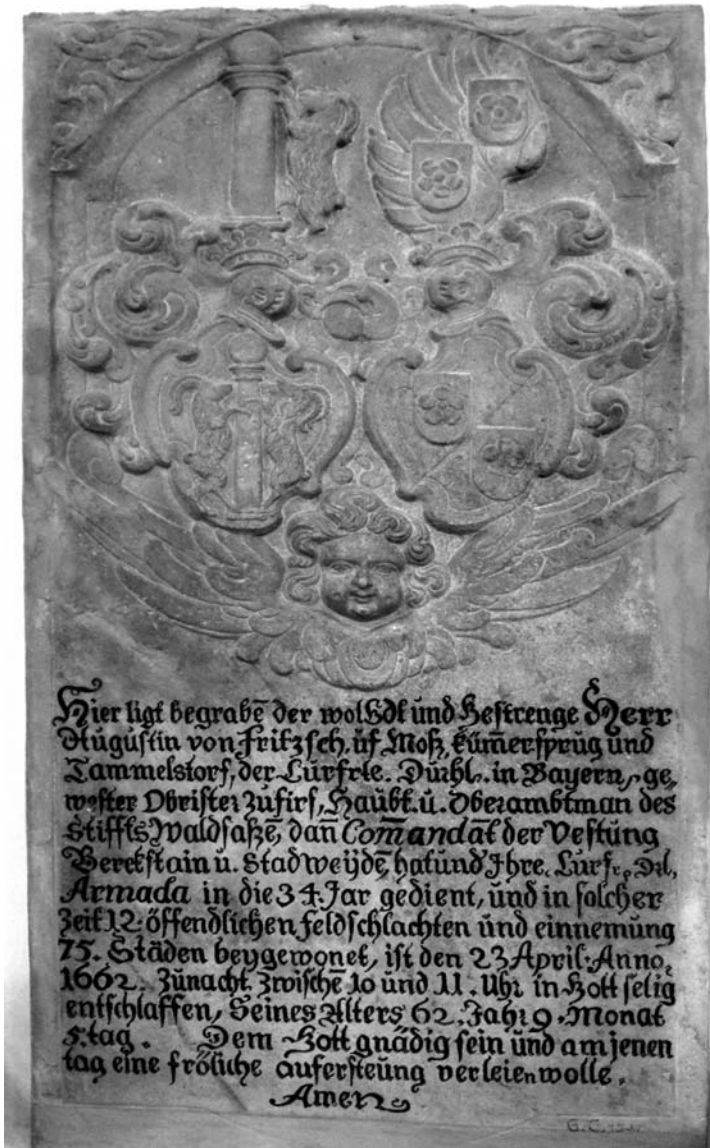 Hier ligt begrabē der wolEdl und Gestrenge Herr
Augustin von Fritzsch, uf Moß, Kümersprug und
Tammelstorf, der Curfrte. Durhl. in Bayern, ge,
wester Obrister zu firß, Haubt. u. Oberambtman des
Stiffts Waldsaßē, dan̄ Com̄andāt der Vestung
Berckstain u. Stadweydē, hat und Ihre. Curfr. Drl,
Armada in die 34. Jar gedient, und in solcher
Zeit 12. öffendlichen feldschlachten und einnemung
75. Städen beygewonet, ist den 23 April. Anno,
1662. Zunacht zwischē 10 und 11. Uhr in Gott selig
entschlaffen, Seines Alters 62. Jahr 9. Monat
5. tag. Dem Gott gnädig sein und am jenen
tag eine fröliche aufersteung verleien wolle.
Amen
G. C.